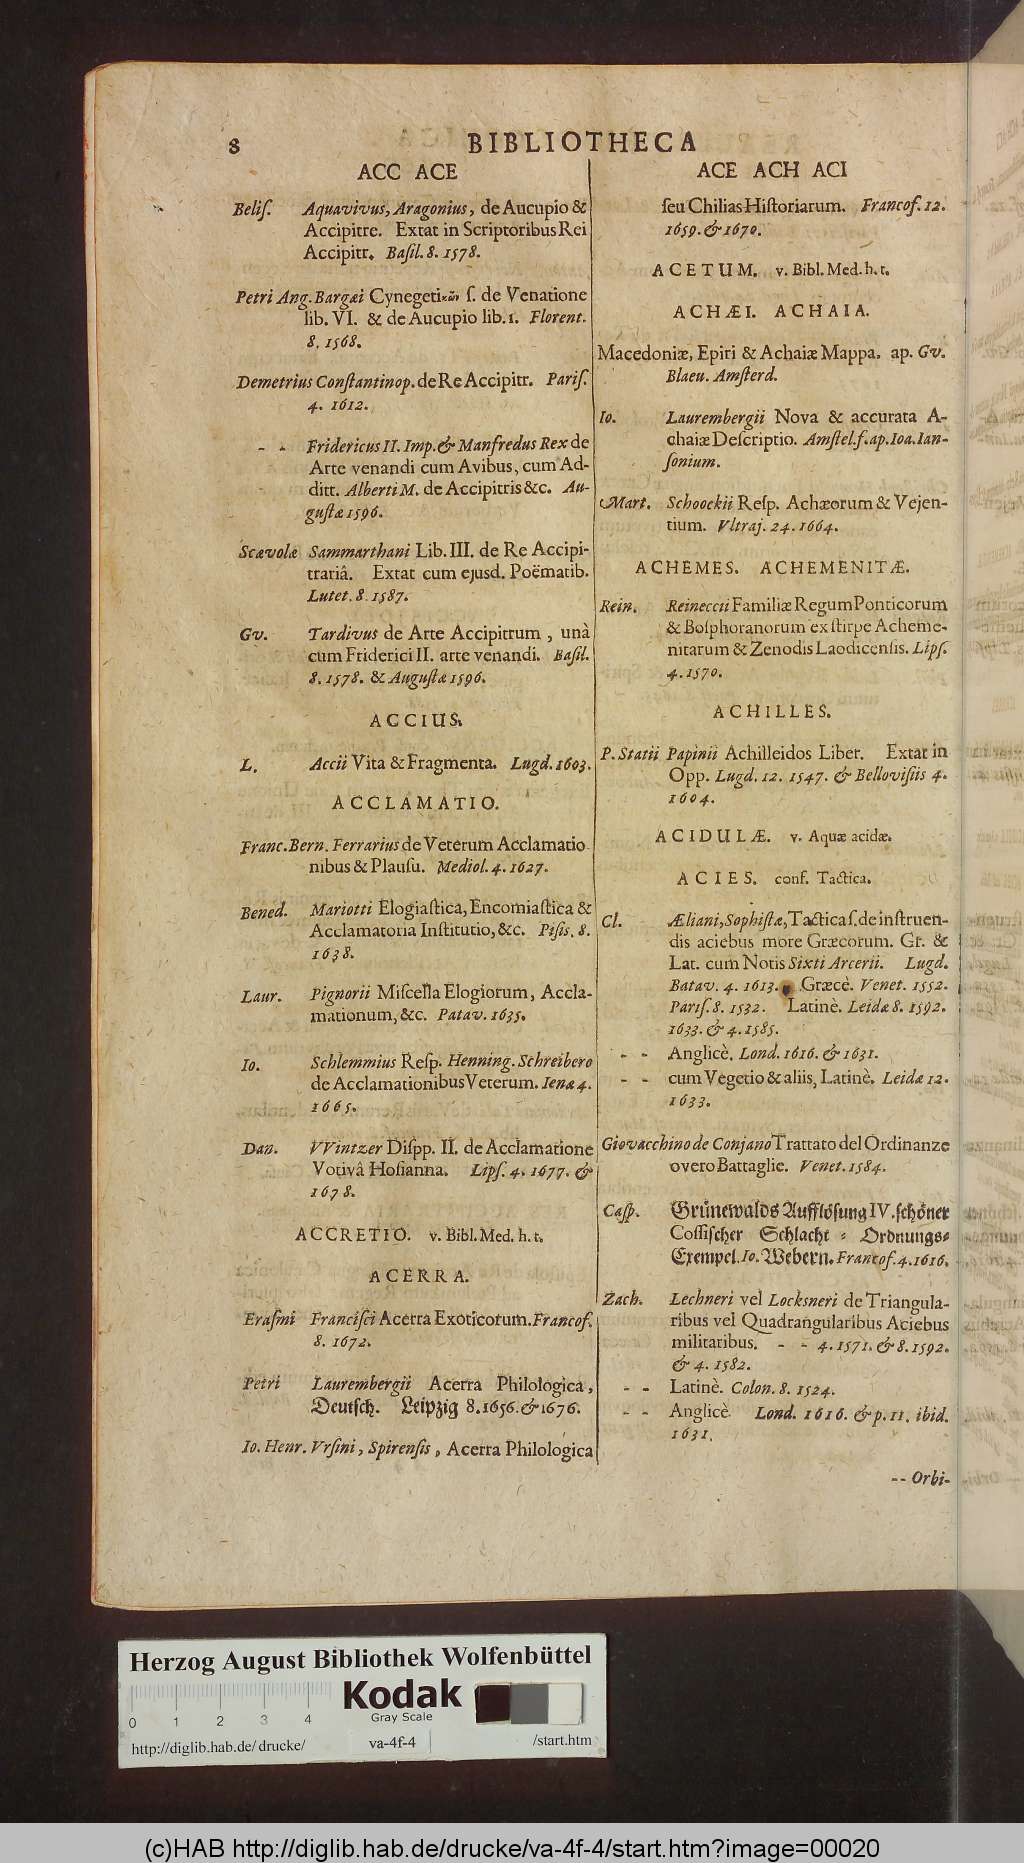 8 BIBLIOTHECA
ACC ACE
Beliſ. Aquavivus, Aragonius, de Aucupio &
Accipitre. Extat in Scriptoribus Rei
Accipitr. Baſil. 8. 1578.
Petri Ang. Bargæi Cynegetικῶν ſ. de Venatione
lib. VI. & de Aucupio lib. 1. Florent.
8. 1568.
Demetrius Conſtantinop. de Re Accipitr. Pariſ.
4. 1612.
- - Fridericus II. Imp. & Manfredus Rex de
Arte venandi cum Avibus, cum Ad-
ditt. Alberti M. de Accipitris &c. Au-
guſtæ 1596.
Scævolæ Sammarthani Lib. III. de Re Accipi-
trariâ. Extat cum ejusd. Poëmatib.
Lutet. 8. 1587.
Gv. Tardivus de Arte Accipitrum, unà
cum Friderici II. arte venandi. Baſil.
8. 1578. & Auguſtæ 1596.
ACCIUS.
L. Accii Vita & Fragmenta. Lugd. 1603.
ACCLAMATIO.
Franc. Bern. Ferrarius de Veterum Acclamatio-
nibus & Plauſu. Mediol. 4. 1627.
Bened. Mariotti Elogiaſtica, Encomiaſtica &
Acclamatoria Inſtitutio, &c. Piſis. 8.
1638.
Laur. Pignorii Miſcella Elogiorum, Accla-
mationum, &c. Patav. 1635.
Io. Schlemmius Reſp. Henning. Schreibero
de Acclamationibus Veterum. Ienæ 4.
1665.
Dan. VVintzer Diſpp. II. de Acclamatione
Votivâ Hoſianna. Lipſ. 4. 1677. &
1678.
ACCRETIO. v. Bibl. Med. h. t.
ACERRA.
Eraſmi Franciſci Acerra Exoticorum. Francof.
8. 1672.
Petri Laurembergii Acerra Philologica,
Deutſch. Leipzig 8. 1656. & 1676.
Io. Henr. Vrſini, Spirenſis, Acerra Philologica
ACE ACH ACI
ſeu Chilias Hiſtoriarum. Francof. 12.
1659. & 1670.
ACETUM. v. Bibl. Med. h. t.
ACHÆI. ACHAIA.
Macedoniæ, Epiri & Achaiæ Mappa. ap. Gv.
Blaeu. Amſterd.
Io. Laurembergii Nova & accurata A-
chaiæ Deſcriptio. Amſtel. f. ap. Ioa. Ian-
ſonium.
Mart. Schoockii Reſp. Achæorum & Vejen-
tium. Vltraj. 24. 1664.
ACHEMES. ACHEMENITÆ.
Rein. Reineccii Familiæ Regum Ponticorum
& Boſphoranorum ex ſtirpe Acheme-
nitarum & Zenodis Laodicenſis. Lipſ.
4. 1570.
ACHILLES.
P. Statii Papinii Achilleidos Liber. Extat in
Opp. Lugd. 12. 1547. & Belloviſiis 4.
1604.
ACIDULÆ. v. Aquæ acidæ.
ACIES. conf. Tactica.
Cl. Æliani, Sophiſtæ, Tactica ſ. de inſtruen-
dis aciebus more Græcorum. Gr. &
Lat. cum Notis Sixti Arcerii. Lugd.
Batav. 4. 1613. Græcè. Venet. 1552.
Pariſ. 8. 1532. Latinè. Leidæ 8. 1592.
1633. & 4. 1585.
- - Anglicè. Lond. 1616. & 1631.
- - cum Vegetio & aliis, Latinè. Leidæ 12.
1633.
Giovacchino de Conjano Trattato del Ordinanze
overo Battaglie. Venet. 1584.
Caſp. Grünewalds Aufflöſung IV. ſchöner
Coſſiſcher Schlacht-Ordnungs-
Exempel. Io. Webern. Francof. 4. 1616.
Zach. Lechneri vel Locksneri de Triangula-
ribus vel Quadrangularibus Aciebus
militaribus. - - 4. 1571. & 8. 1592.
& 4. 1582.
- - Latinè. Colon. 8. 1524.
- - Anglicè. Lond. 1616. & p. 11. ibid.
1631.
-- Orbi-
Herzog August Bibliothek Wolfenbüttel
Kodak
Gray Scale
0 1 2 3 4
http://diglib.hab.de/drucke/ va-4f-4 /start.htm
(c)HAB http://diglib.hab.de/drucke/va-4f-4/start.htm?image=00020